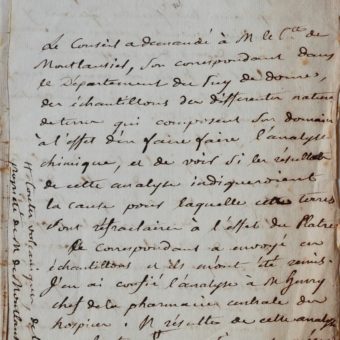 Le Conseil a demandé à M. le Cte de
Montlausier, son correspondant dans
le Département du Puy de dome,
des échantillons des différentes nature
de terre qui composent son domaine
à l'effet d'en faire faire l'analyse
chimique, et de voir si les résultats
de cette analyse indiqueroient
la cause pour laquelle cette terre
sont réfractaires à l'effet du Platre
Le Correspondant a envoyé ces
échantillons et ils m'ont été remis.
J'en ai confié l'analyse à M henry
chef de la pharmacie centrale des
hospices. Il résulte de cette analyse
propriété de M de Montlausier